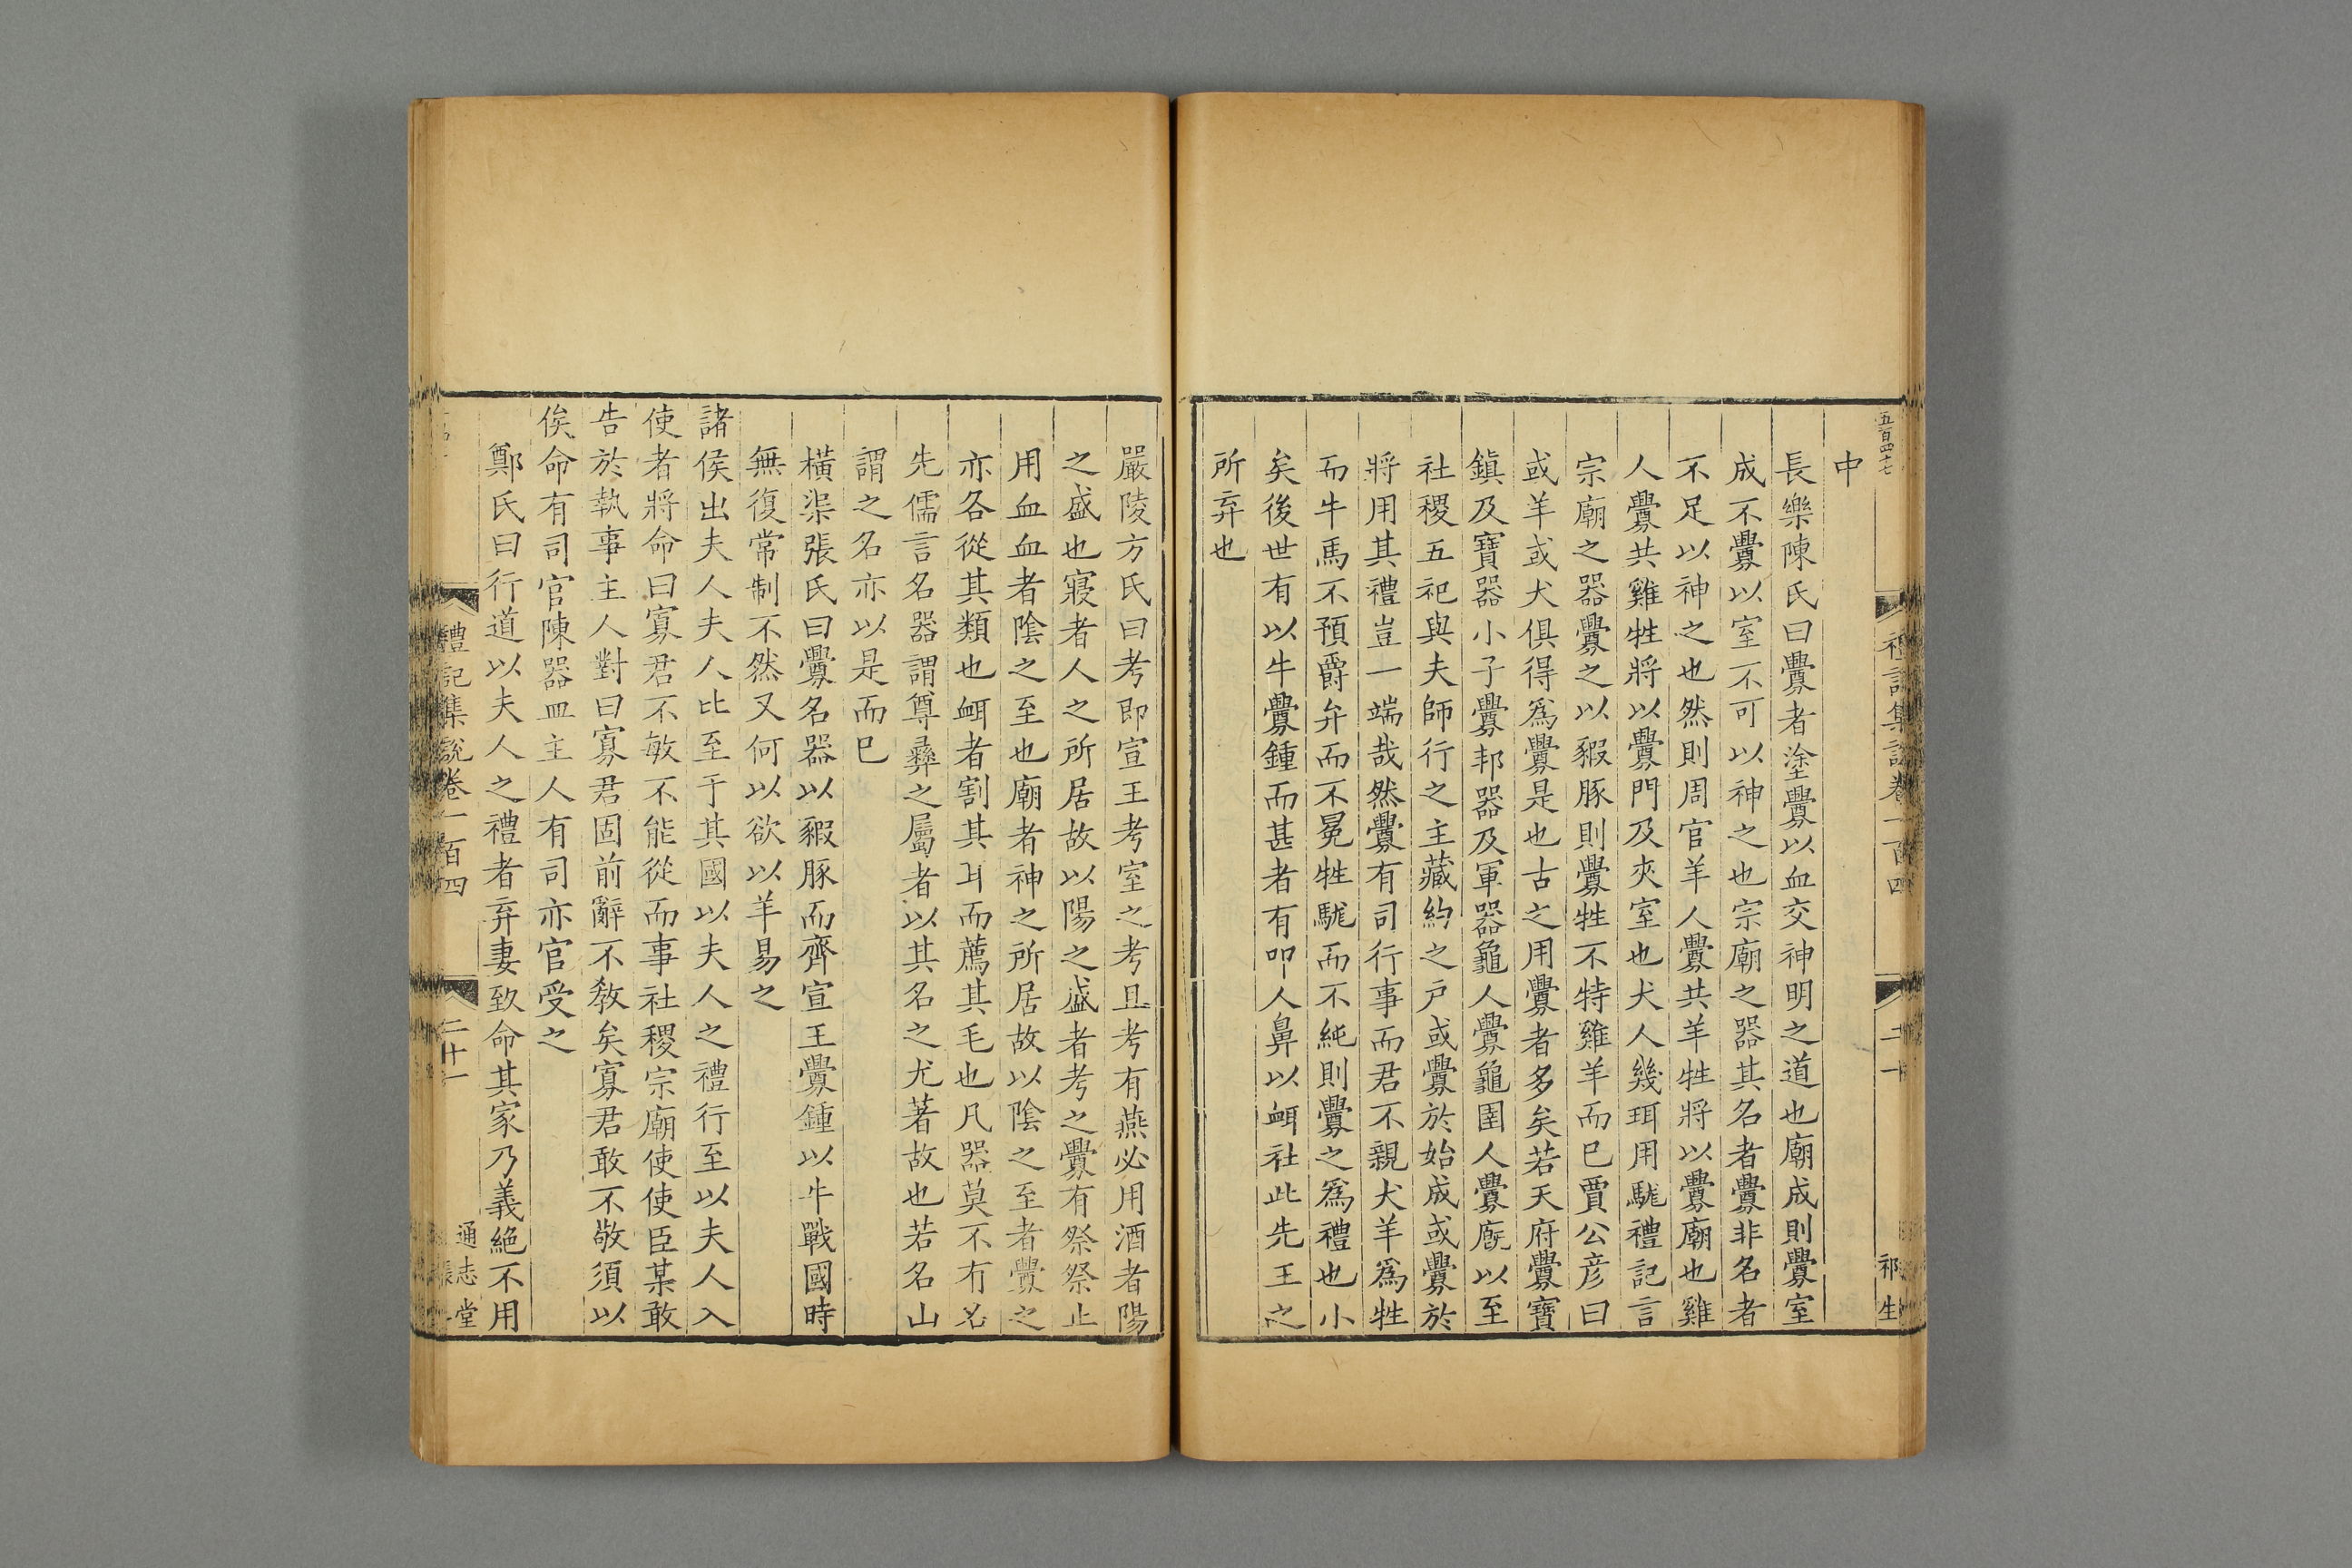 五百四十七
禮記集說卷一百四
二十
祁生
中
長樂陳氏曰釁者塗釁以血交神明之道也廟成則釁室
成不釁以室不可以神之也宗廟之器其名者釁非名者
不足以神之也然則周官羊人釁共羊牲將以釁廟也雞
人釁共雞牲將以釁門及夾室也犬人幾珥用駹禮記言
宗廟之器釁之以豭豚則釁牲不特雞羊而已賈公彦曰
或羊或犬俱得爲釁是也古之用釁者多矣若天府釁寶
鎮及寶器小子釁邦器及軍器龜人釁龜圉人釁廐以至
社稷五祀與夫師行之主藏約之戸或釁於始成或釁於
將用其禮豈一端哉然釁有司行事而君不親犬羊爲牲
而牛馬不預爵弁而不冕牲駹而不純則釁之爲禮也小
矣後世有以牛釁鍾而甚者有叩人鼻以衈社此先王之
所弃也
嚴陵方氏曰考即宣王考室之考且考有燕必用酒者陽
之盛也寢者人之所居故以陽之盛者考之釁有祭祭止
用血血者陰之至也廟者神之所居故以陰之至者釁之
亦各從其類也衈者割其耳而薦其毛也凡器莫不有名
先儒言名器謂尊彝之屬者以其名之尤著故也若名山
謂之名亦以是而已
橫渠張氏曰釁名器以豭豚而齊宣王釁鍾以牛戰國時
無復常制不然又何以欲以羊易之
諸侯出夫人夫人比至于其國以夫人之禮行至以夫人入
使者將命曰寡君不敏不能從而事社稷宗廟使使臣某敢
告於執事主人對曰寡君固前辭不敎矣寡君敢不敬須以
俟命有司官陳器皿主人有司亦官受之
鄭氏曰行道以夫人之禮者弃妻致命其家乃義絕不用
禮記集說卷一百四
二十一
通志堂